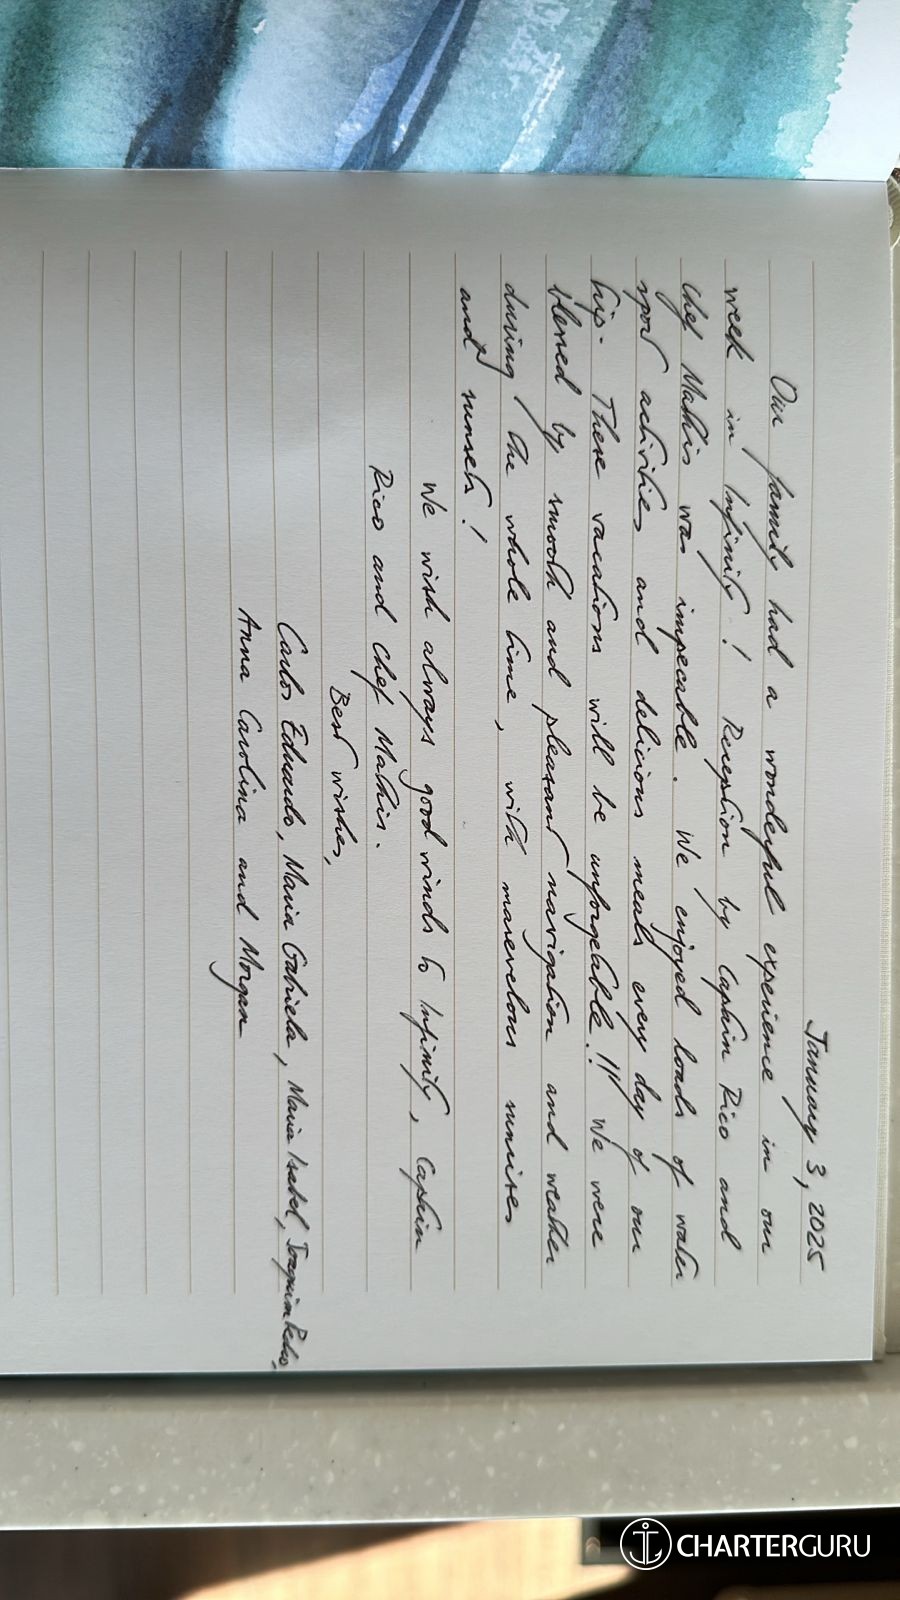 January 3, 2025
Our family had a wonderful experience in our
week in Infinity! Reception by Captain Rico and
Chef Mathis was impecable. We enjoyed loads of water
sport activities and delicious meals every day of our
trip. These vacations will be unforgetable!! We were
blessed by smooth and pleasant navigation and weather
during the whole time, with marevelous sunrises
and sunsets!
We wish always good winds to Infinity, Captain
Rico and Chef Mathis.
Best wishes,
Carlos Eduardo, Maria Gabriela, Maria Isabel, Joaquim Pedro,
Anna Carolina and Morgan
CHARTERGURU